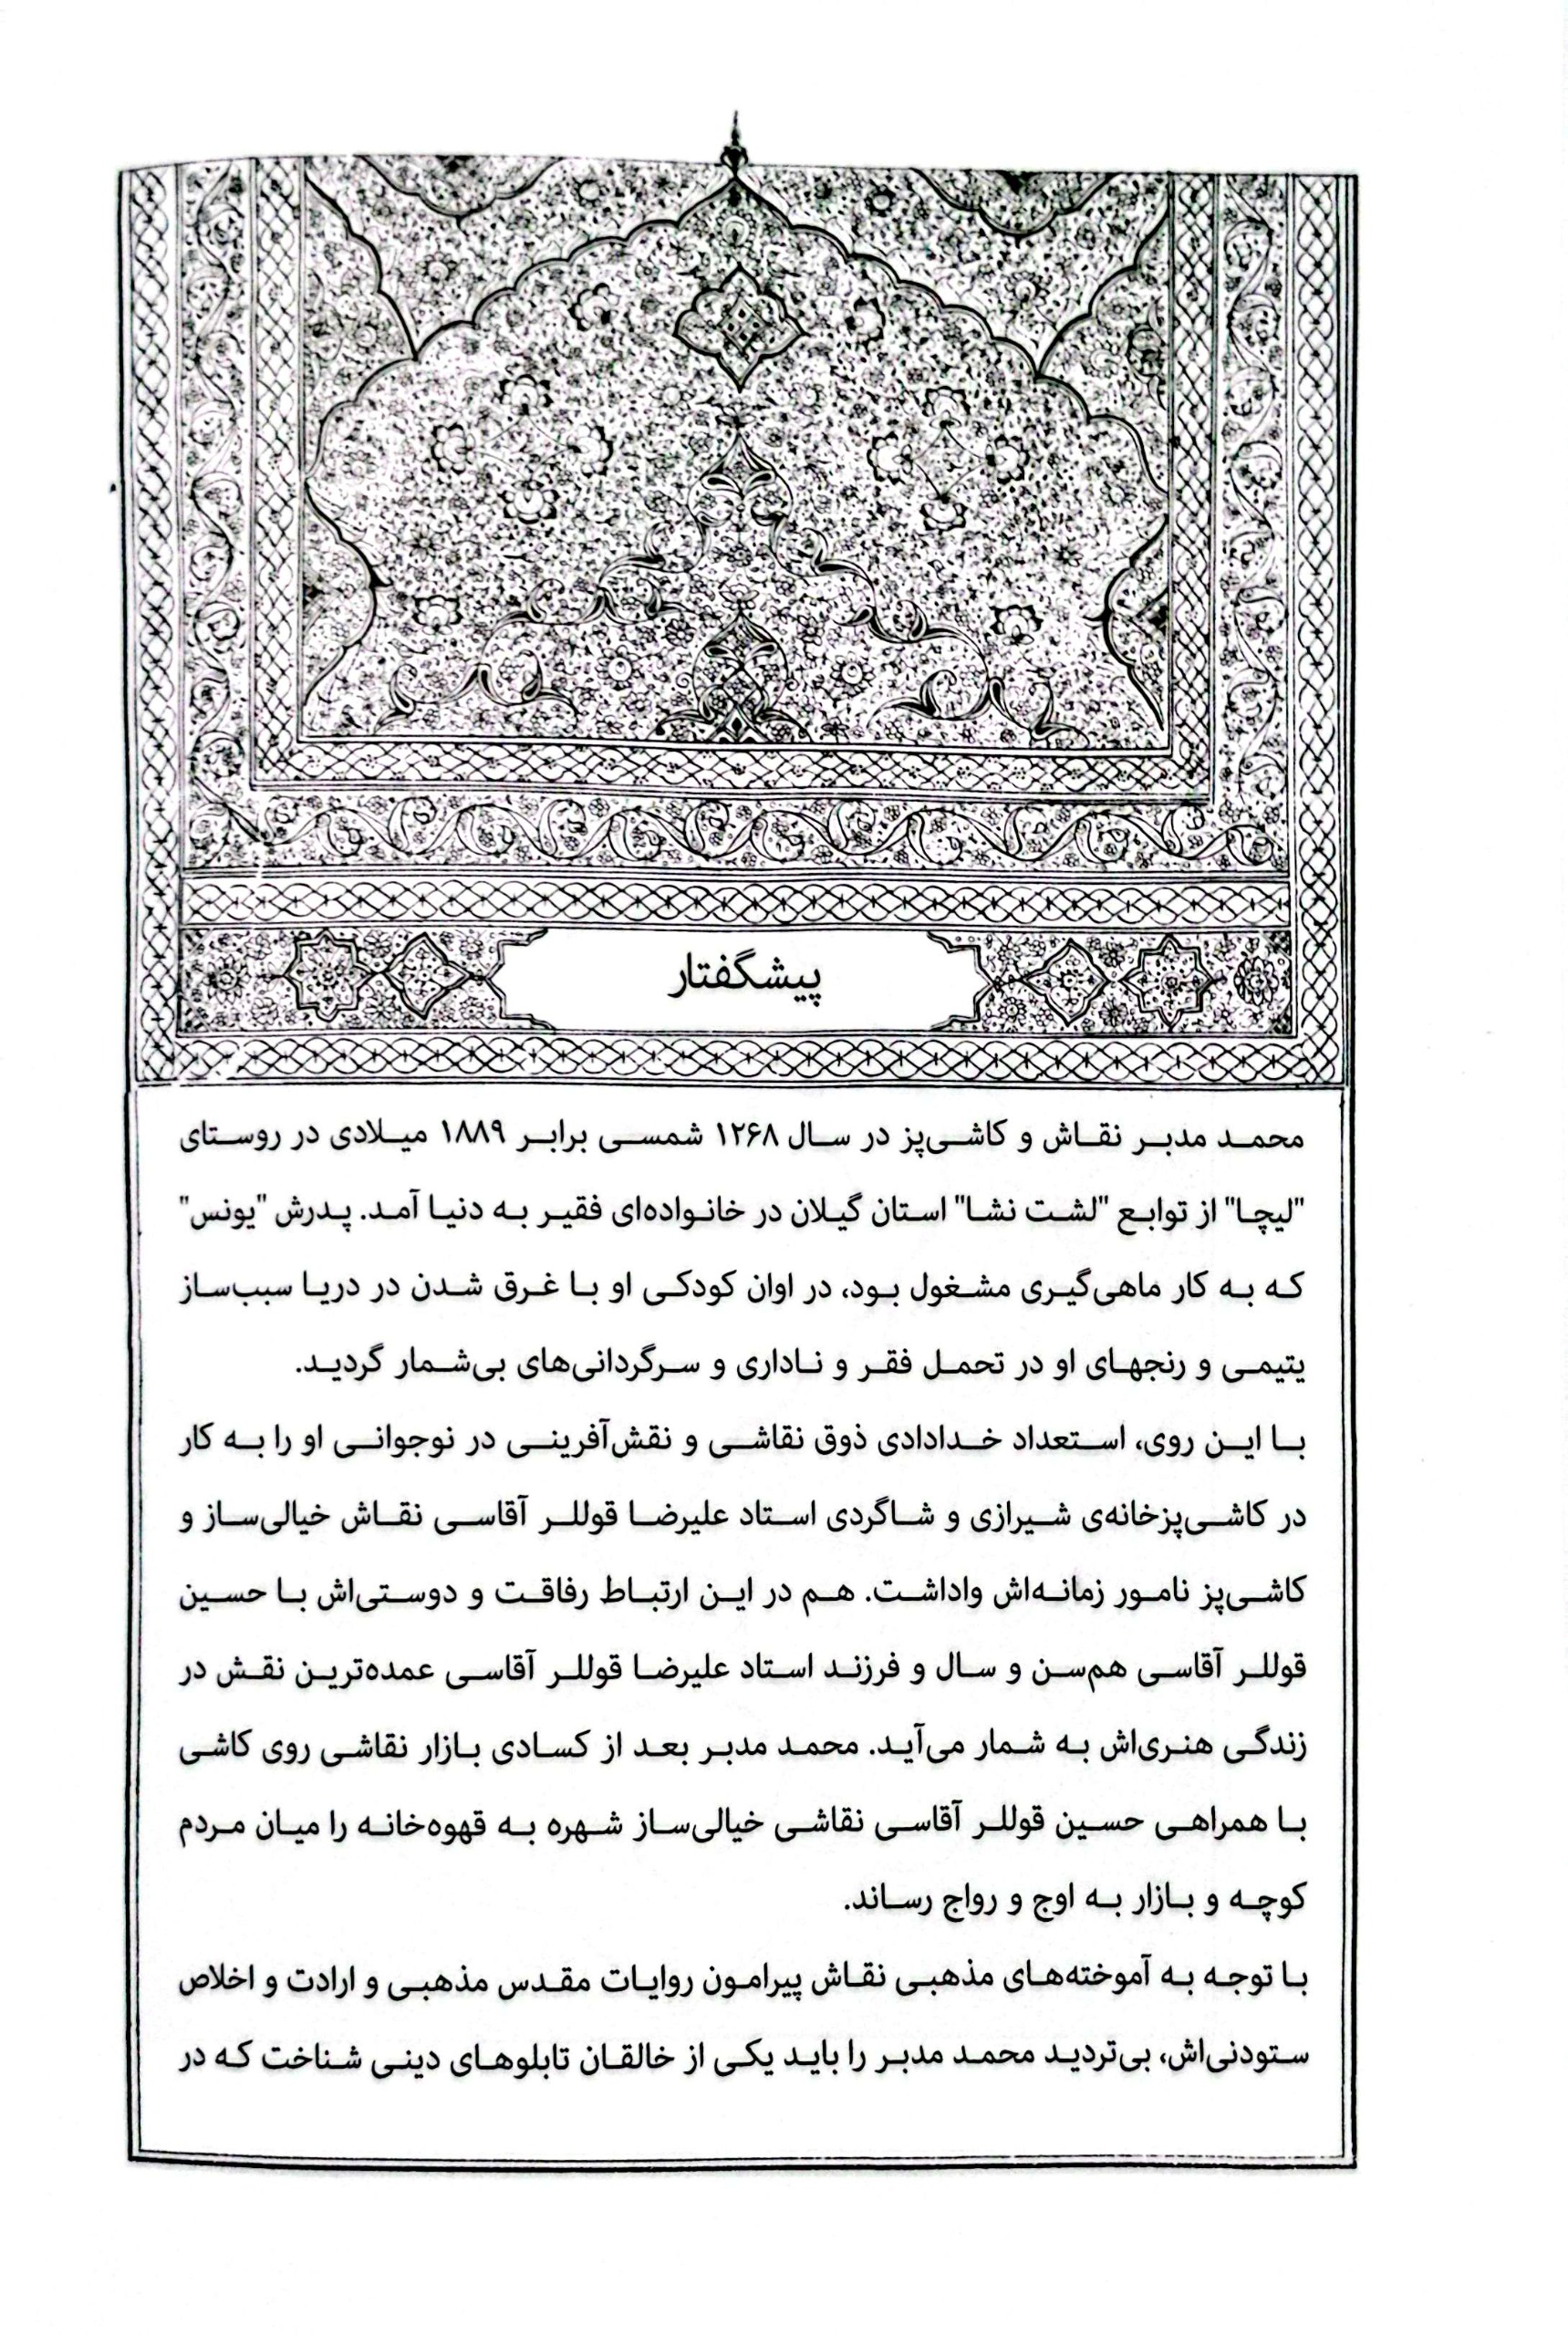 پیشگفتار
محمد مدبر نقاش و کاشی‌پز در سال ۱۲۶۸ شمسی برابر ۱۸۸۹ میلادی در روستای
"لیچا" از توابع "لشت نشا" استان گیلان در خانواده‌ای فقیر به دنیا آمد. پدرش "یونس"
که به کار ماهی‌گیری مشغول بود، در اوان کودکی او با غرق شدن در دریا سبب‌ساز
یتیمی و رنجهای او در تحمل فقر و ناداری و سرگردانی‌های بی‌شمار گردید.
با این روی، استعداد خدادادی ذوق نقاشی و نقش‌آفرینی در نوجوانی او را به کار
در کاشی‌پزخانه‌ی شیرازی و شاگردی استاد علیرضا قوللر آقاسی نقاش خیالی‌ساز و
کاشی‌پز نامور زمانه‌اش واداشت. هم در این ارتباط رفاقت و دوستی‌اش با حسین
قوللر آقاسی هم‌سن و سال و فرزند استاد علیرضا قوللر آقاسی عمده‌ترین نقش در
زندگی هنری‌اش به شمار می‌آید. محمد مدبر بعد از کسادی بازار نقاشی روی کاشی
با همراهی حسین قوللر آقاسی نقاشی خیالی‌ساز شهره به قهوه‌خانه را میان مردم
کوچه و بازار به اوج و رواج رساند.
با توجه به آموخته‌های مذهبی نقاش پیرامون روایات مقدس مذهبی و ارادت و اخلاص
ستودنی‌اش، بی‌تردید محمد مدبر را باید یکی از خالقان تابلوهای دینی شناخت که در